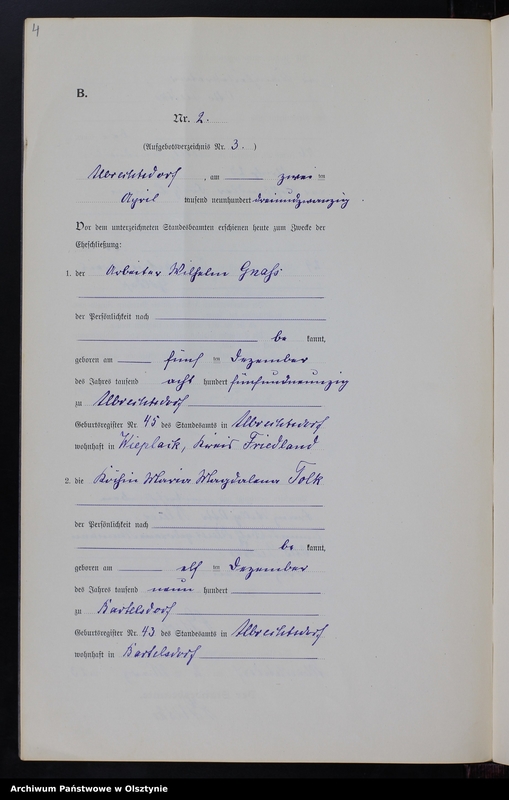 4
B.
Nr. 2.
(Aufgebotsverzeichnis Nr. 3.)
Albrechtsdorf, am zwei ten
April tausend neunhundert dreiundzwanzig.
Vor dem unterzeichneten Standesbeamten erschienen heute zum Zwecke der
Eheschließung:
1. der Arbeiter Wilhelm Gnaß
der Persönlichkeit nach
be kannt,
geboren am fünf ten Dezember
des Jahres tausend acht hundert fünfundneunzig
zu Albrechtsdorf
Geburtsregister Nr. 45 des Standesamts in Albrechtsdorf
wohnhaft in Wieplack, Kreis Friedland
2. die Köchin Maria Magdalena Tolk
der Persönlichkeit nach
be kannt,
geboren am elf ten Dezember
des Jahres tausend neun hundert
zu Bartelsdorf
Geburtsregister Nr. 43 des Standesamts in Albrechtsdorf
wohnhaft in Bartelsdorf
Archiwum Państwowe w Olsztynie